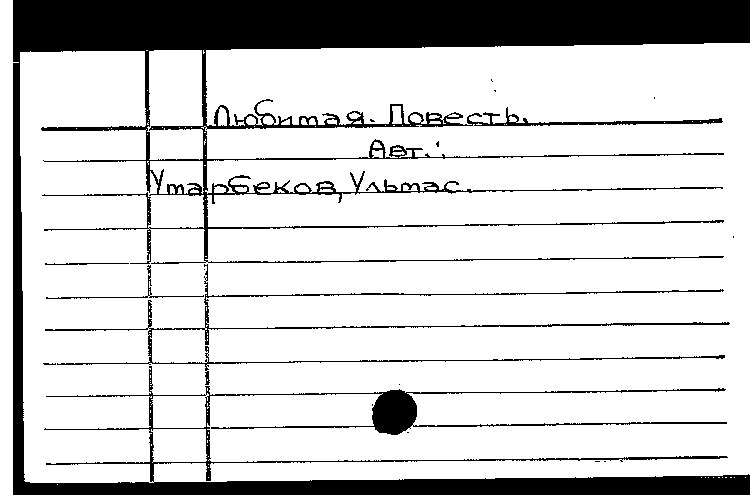 Любимая. Повесть.
Авт.:
Умарбеков, Ульмас.